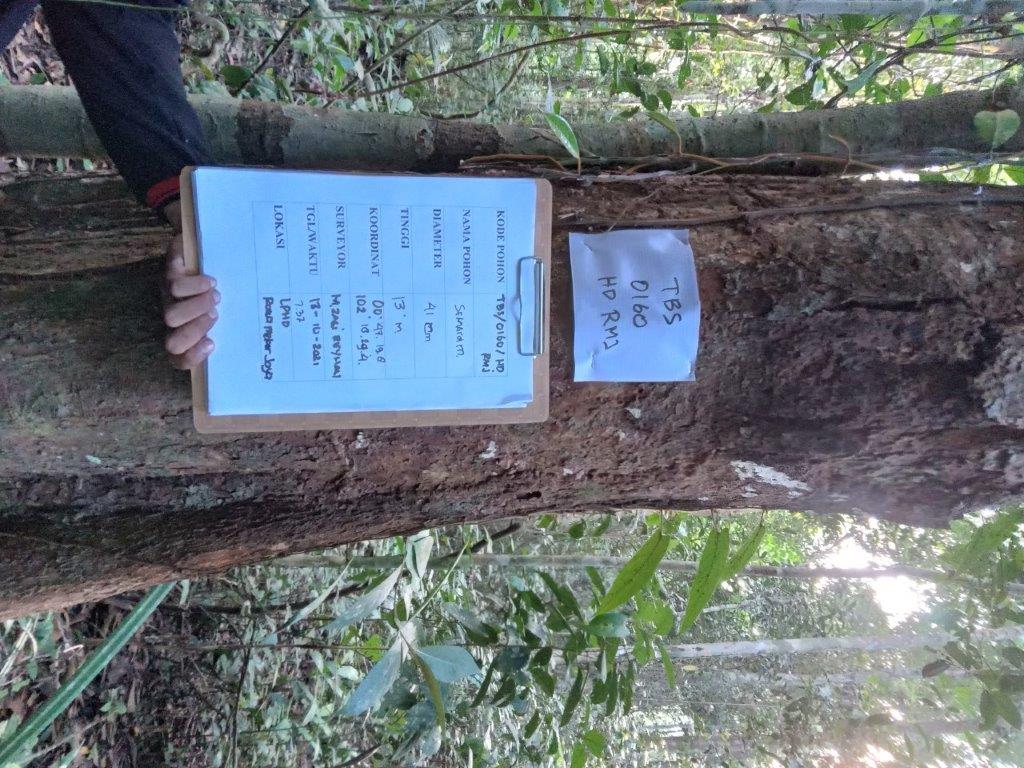 TBS
0160
HD RMJ
KODE POHON TBS/0160/HD
RMJ
NAMA POHON
DIAMETER 41 cm
TINGGI 13 m
KOORDINAT 00° 47. 19.6
102° 18.29.4.
SURVEYOR M.
TGL/WAKTU 13-10-2021
7.37
LOKASI LPHD
Rawa Mekar Jaya